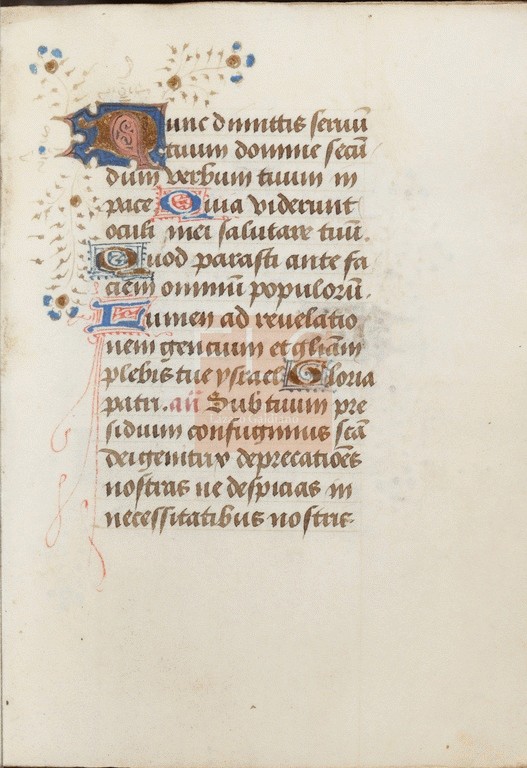 Nunc dimittis seruū
tuum domine secū
dum verbum tuum in
pace Quia viderunt
oculi mei salutare tuū.
Quod parasti ante fa
ciem omniū populorū.
Lumen ad reuelatio
nem gentium et gl̄iam
plebis tue ysrael Gloria
patri. añ Sub tuum pre
sidium confugimus scā
dei genitrix deprecatiōes
nostras ne despicias in
necessitatibus nostris.